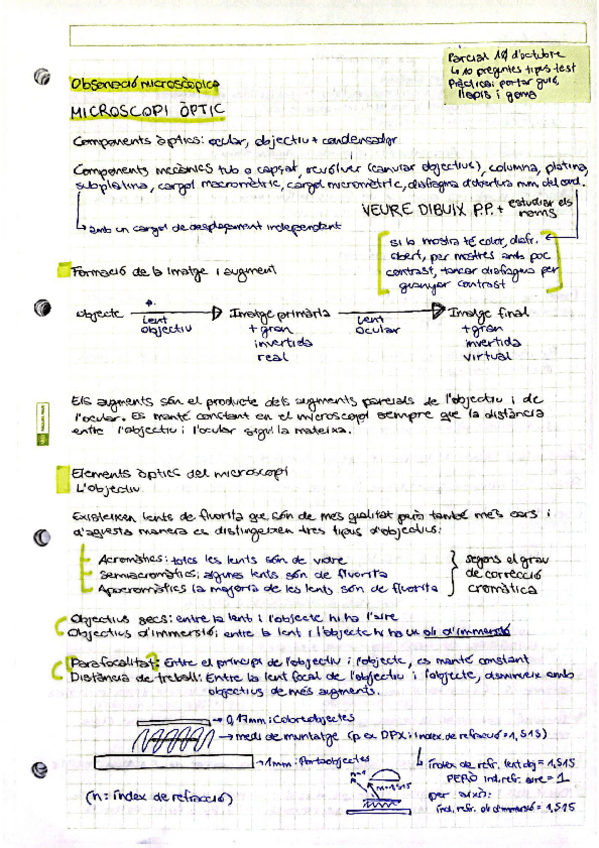 Parcial 19 d'octubre
↳ 10 preguntes tipus test
Pràctica: portar guió,
llapis i goma
Observació microscòpica
MICROSCOPI ÒPTIC
Components òptics: ocular, objectiu + condensador
Components mecànics tub o capçal, revòlver (canviar objectius), columna, platina,
subplatina, cargol macromètric, cargol micromètric, diafragma d'obertura num. del cond.
VEURE DIBUIX P.P. + estudiar els
noms
↳ amb un cargol de desplaçament independent
si la mostra té color, diafr.
obert, per mostres amb poc
contrast, tancar diafragma per
guanyar contrast
Formació de la imatge i augment
objecte → Imatge primària → Imatge final
Lent objectiu
Lent ocular
+ gran
invertida
real
+ gran
invertida
virtual
Els augments són el producte dels augments parcials de l'objectiu i de
l'ocular. Es manté constant en el microscopi sempre que la distància
entre l'objectiu i l'ocular sigui la mateixa.
Elements òptics del microscopi
L'objectiu
Existeixen lents de fluorita que són de més qualitat però també més cars i
d'aquesta manera es distingeixen tres tipus d'objectius:
Acromàtics: totes les lents són de vidre
Semiacromàtics: algunes lents són de fluorita
Apocromàtics (la majoria de les lents són de fluorita
segons el grau
de correcció
cromàtica
Objectius secs: entre la lent i l'objecte hi ha l'aire
Objectius d'immersió: entre la lent i l'objecte hi ha un oli d'immersió
Parafocalitat: Entre el principi de l'objectiu i l'objecte, es manté constant
Distància de treball: Entre la lent focal de l'objectiu i l'objecte, disminueix amb
objectius de més augments.
→ 0,17mm: Cobreobjectes
→ medi de muntatge (p ex DPX: índex de refracció = 1,515)
→ 1mm: Portaobjectes
↳ índex de refr. lent obj = 1,515
PERÒ ind. refr. aire = 1
per això:
ind. refr. oli d'immersió = 1,515
n=1
n=1,515
(n: índex de refracció)